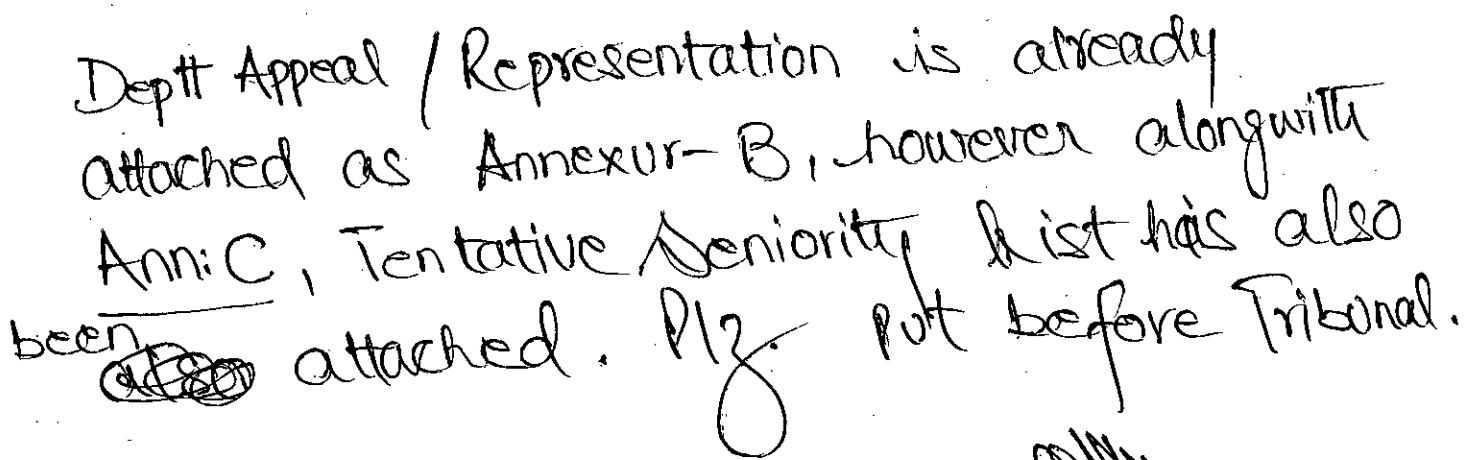 Deptt Appeal / Representation is already
attached as Annexur-B, however alongwith
Ann: C, Tentative Seniority list has also
been attached. Plz. put before Tribunal.